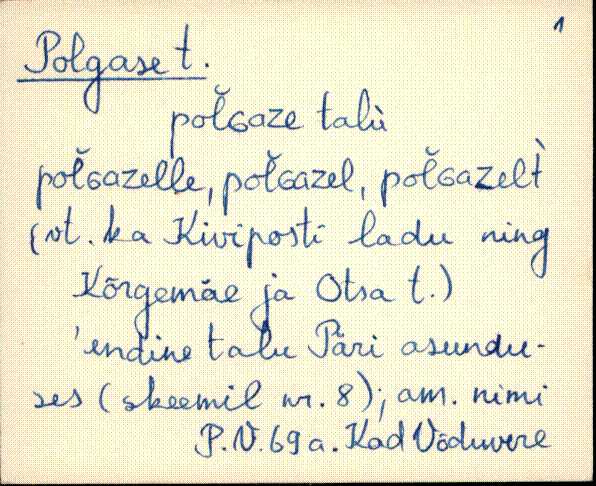 1
Polgase t.
pol̆ɢaze talù
pol̆ɢazelle, pol̆ɢazel, pol̆ɢazelt̀
(vt. ka Kiviposti ladu ning
Kõrgemäe ja Otsa t.)
'endine talu Päri asundu-
ses (skeemil nr. 8); am. nimi
P.V. 69 a. Kad Võduvere